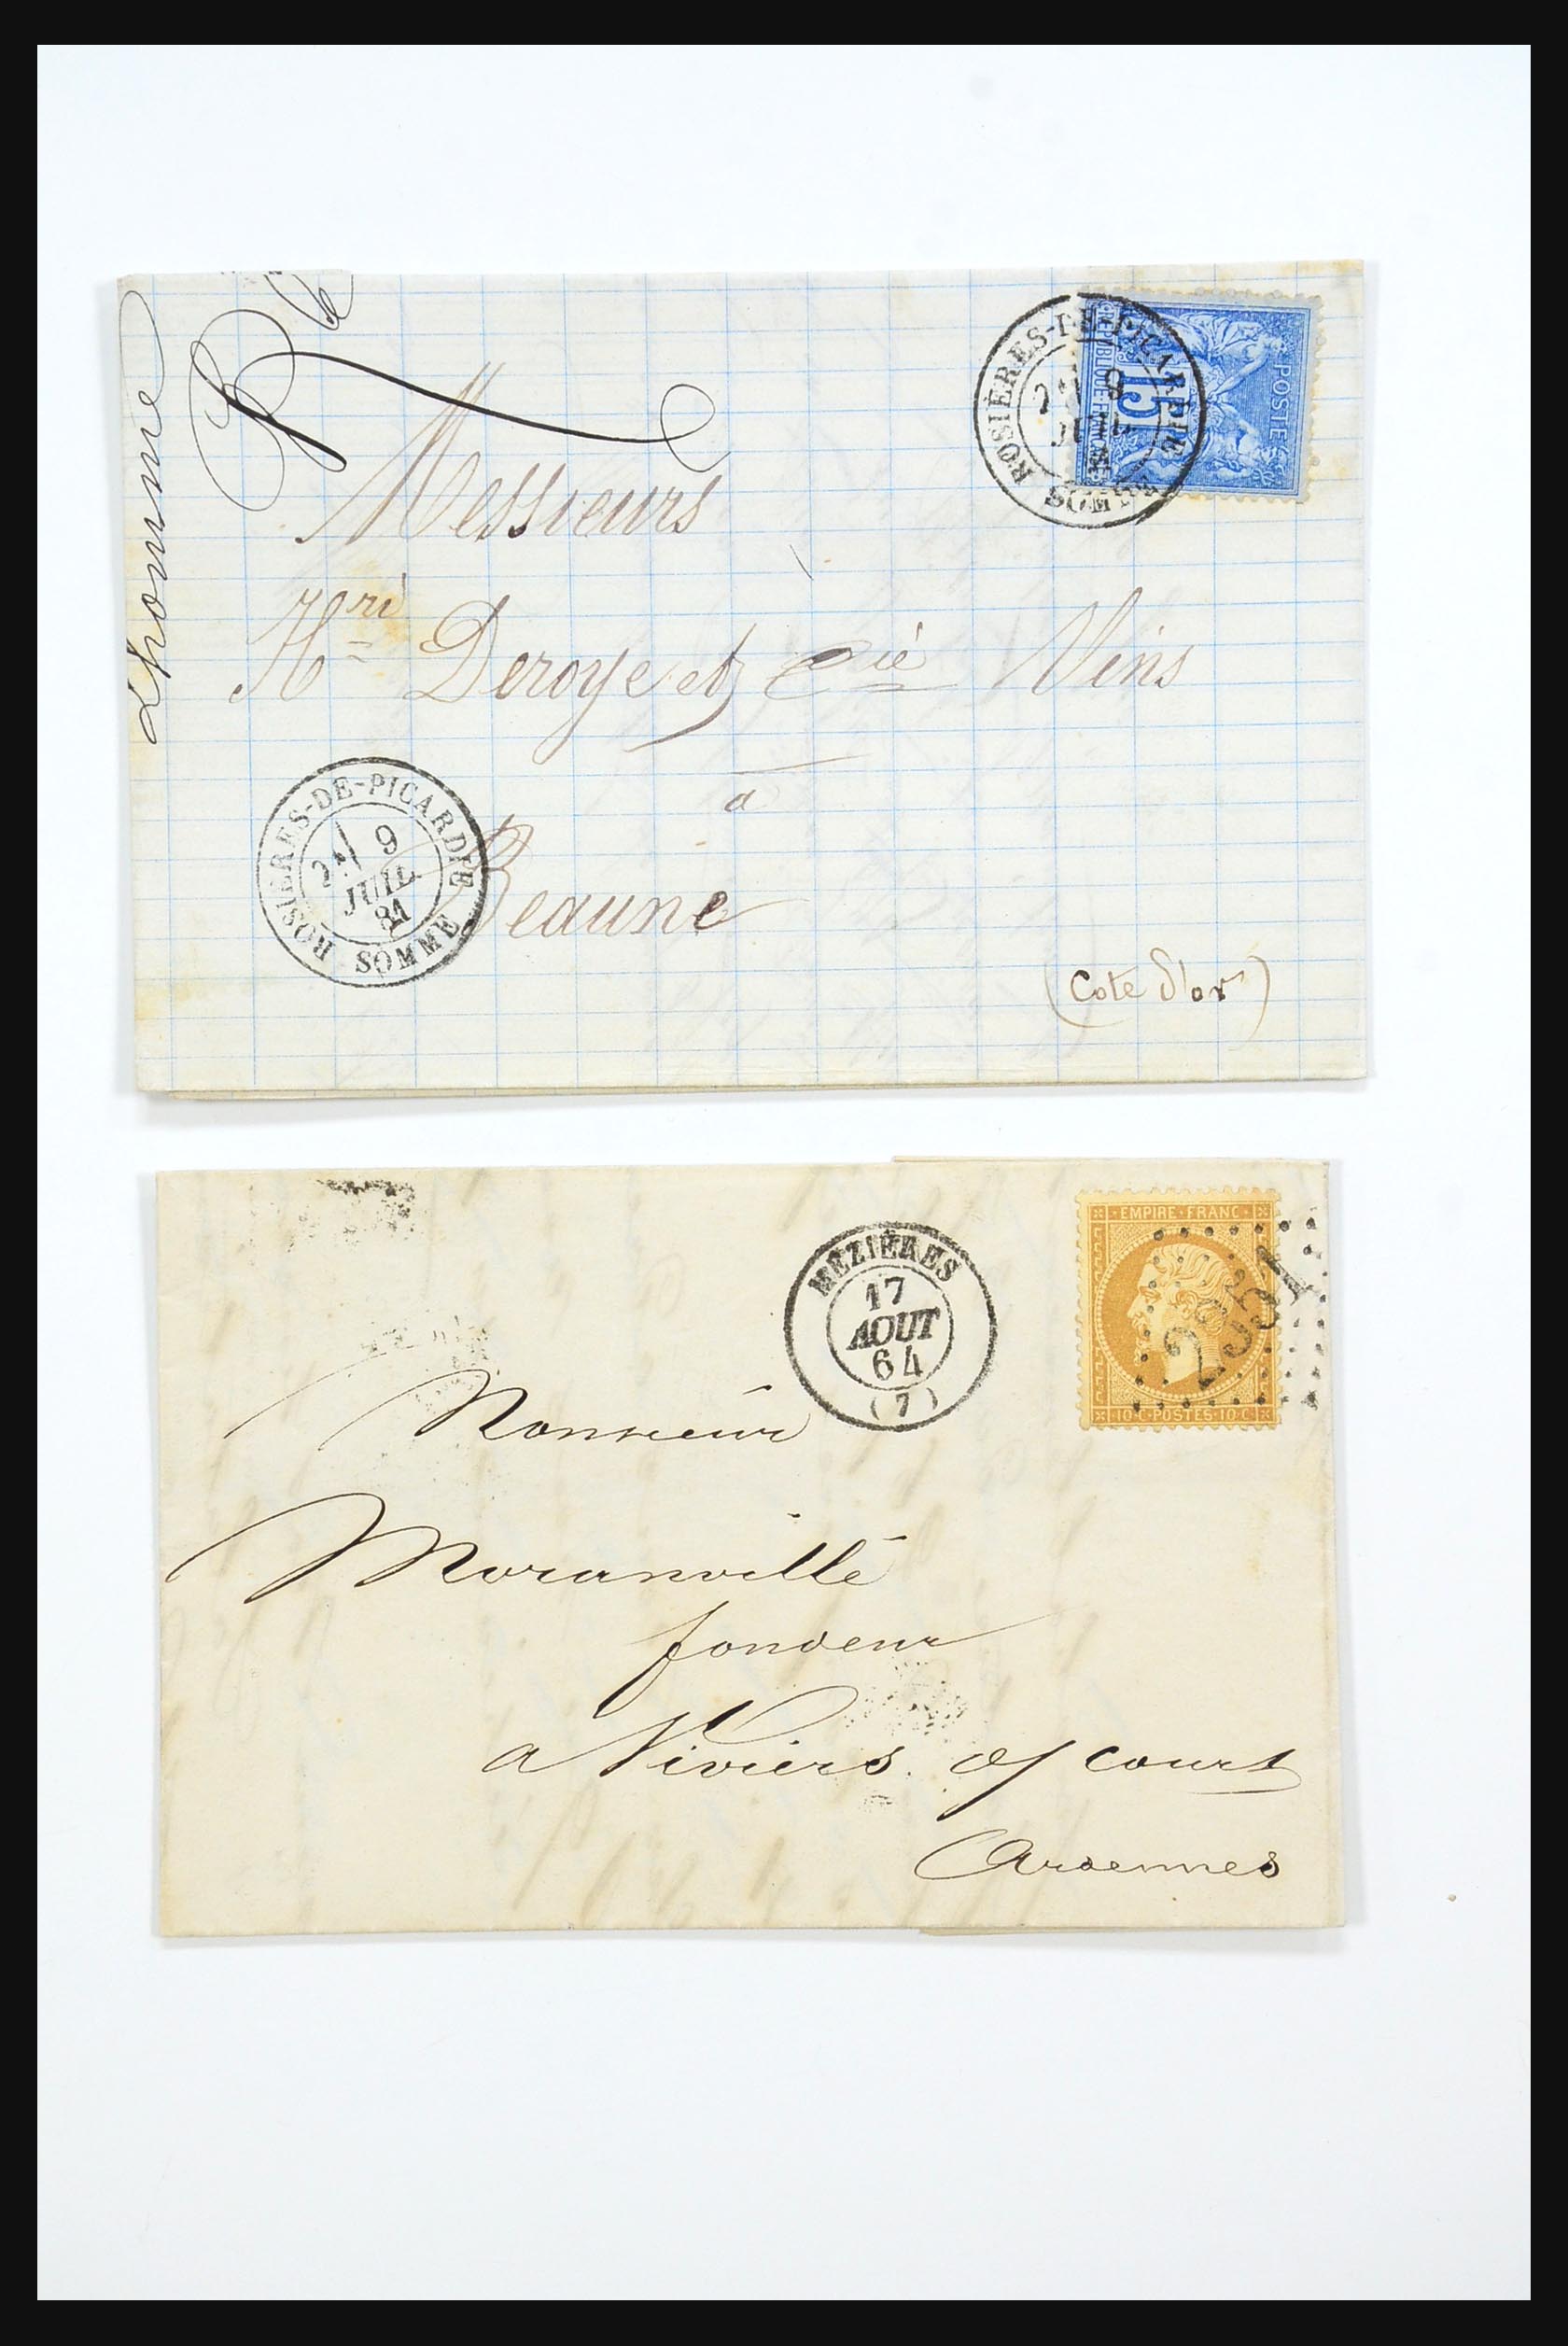 Lhomme
Messieurs
Hri Deroye et Cie Vins
à
Beaune
(Cote d'or)
ROSIÈRES-DE-PICARDIE
9
SOMME
POSTE
15
REPUBLIQUE FRANÇAISE
ROSIÈRES-DE-PICARDIE
2E 9
JUIL.
81
SOMME
MÉZIÈRES
17
AOUT
64
(7)
EMPIRE FRANC
10 C POSTES 10 C
Monsieur
Moranvillé
fondeur
a Viviers a/ court
Ardennes